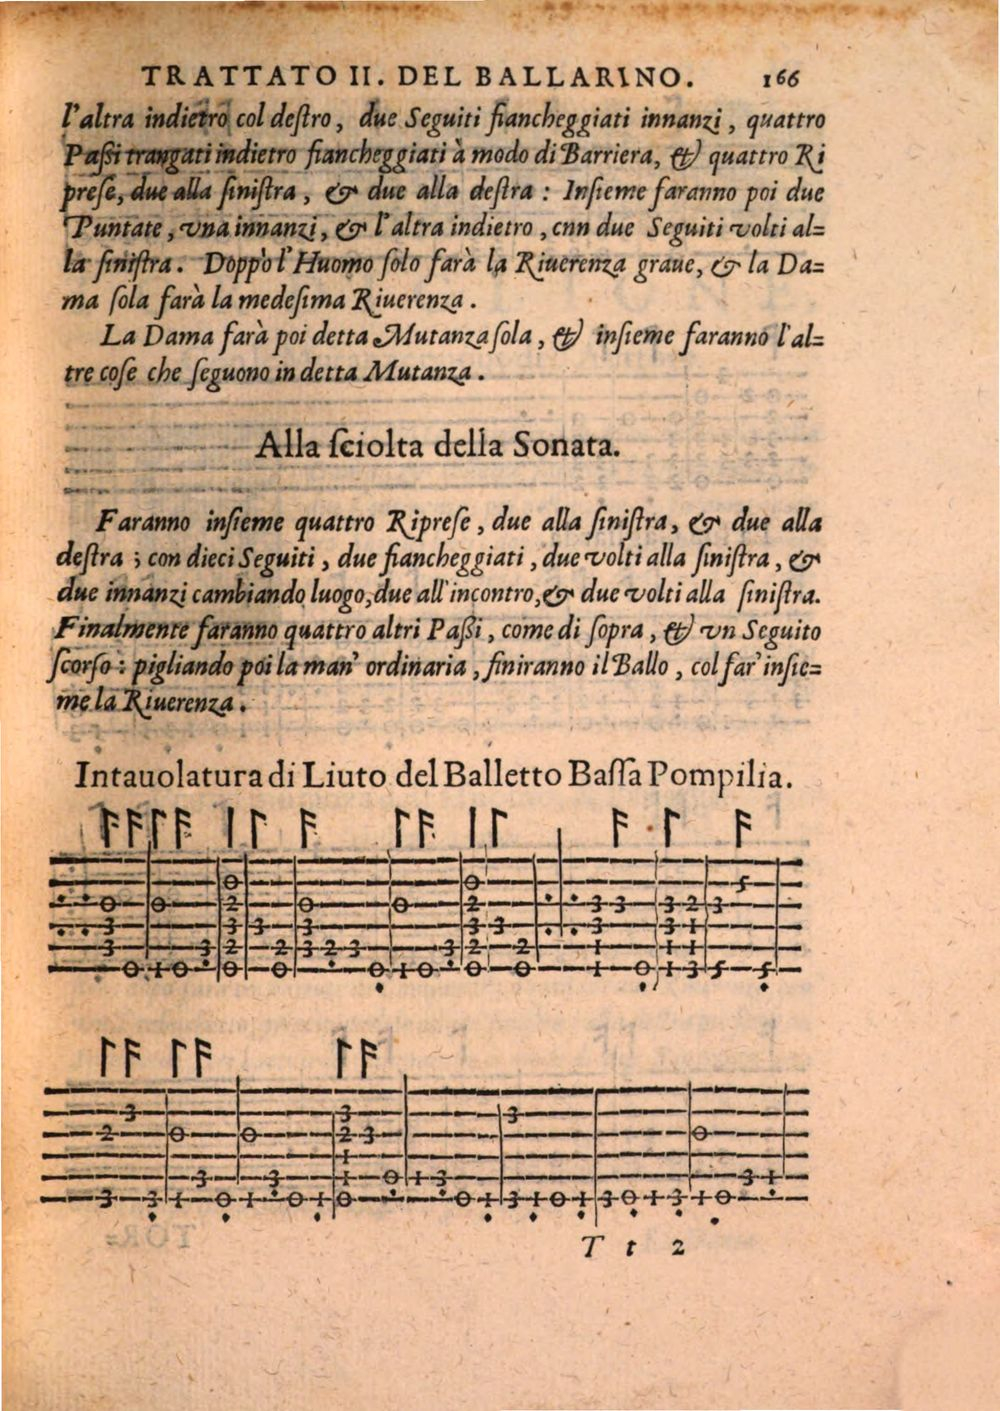 TRATTATO II. DEL BALLARINO. 166
l'altra indietro col deſtro, due Seguiti fiancheggiati innanzi, quattro
Paſſi trangati indietro fiancheggiati à modo di Barriera, & quattro Ri
preſe, due alla ſiniſtra, & due alla deſtra: Inſieme faranno poi due
Puntate, vna innanzi, & l'altra indietro, cnn due Seguiti volti al=
la ſiniſtra. Doppò l'Huomo ſolo farà la Riuerenza graue, & la Da=
ma ſola farà la medeſima Riuerenza.
La Dama farà poi detta Mutanza ſola, & inſieme faranno l'al=
tre coſe che ſeguono in detta Mutanza.
Alla ſciolta della Sonata.
Faranno inſieme quattro Ripreſe, due alla ſiniſtra, & due alla
deſtra; con dieci Seguiti, due fiancheggiati, due volti alla ſiniſtra, &
due innanzi cambiando luogo, due all'incontro, & due volti alla ſiniſtra.
Finalmente faranno quattro altri Paſſi, come di ſopra, & vn Seguito
ſcorſo: pigliando poi la man' ordinaria, finiranno il Ballo, col far' inſie=
me la Riuerenza.
Intauolatura di Liuto del Balletto Baſſa Pompilia.
T t 2